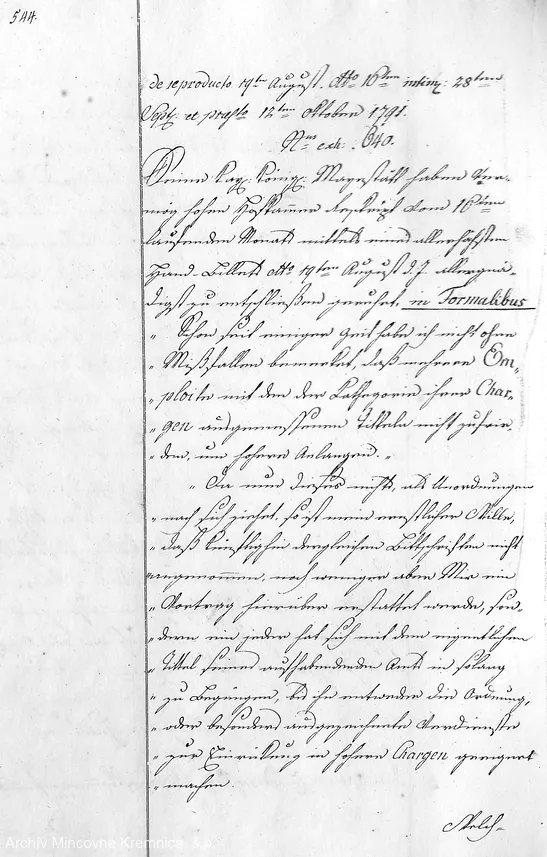 544.
de reproducto 19ten August. ddto 16ten intim: 28ten
Sept. et præsto 12ten Oktober 1791.
Nrus exh: 640.
Seine kay: königl: Mayestätt haben Ver-
mög hohen Hofkammer Reskript vom 16ten
laufenden Monats mittels eines allerhöchsten
Hand-Billets ddto 19ten August d. J. allergnä-
digst zu entschließen geruhet, in Formalibus
„ Schon seit einiger Zeit habe ich nicht ohne
„ Mißfallen bemerket, daß mehrere Em-
„ ploite mit den der Kathegorie ihrer Char-
„ gen angemessenen Titteln nicht zufrie-
„ den, um höhere Anlangen. „
„ Da nun dieses nichts, als Unordnungen
„ nach sich ziehet, so ist mein ernstlicher Wille,
„ daß künftighin dergleichen Bittschriften nicht
„ angenommen, noch weniger aber Mir ein
„ Vortrag hierüber erstattet werde, son-
„ dern ein jeder hat sich mit dem eigentlichen
„ Tittel seines aufhabenden Amts in solang
„ zu Begnügen, bis ihn entweder die Ordnung,
„ oder besonders ausgezeichnete Verdienste
„ zur Einrückung in höhere Chargen geeignet
„ machen.
Welch-
Archív Mincovne Kremnica, š.p.